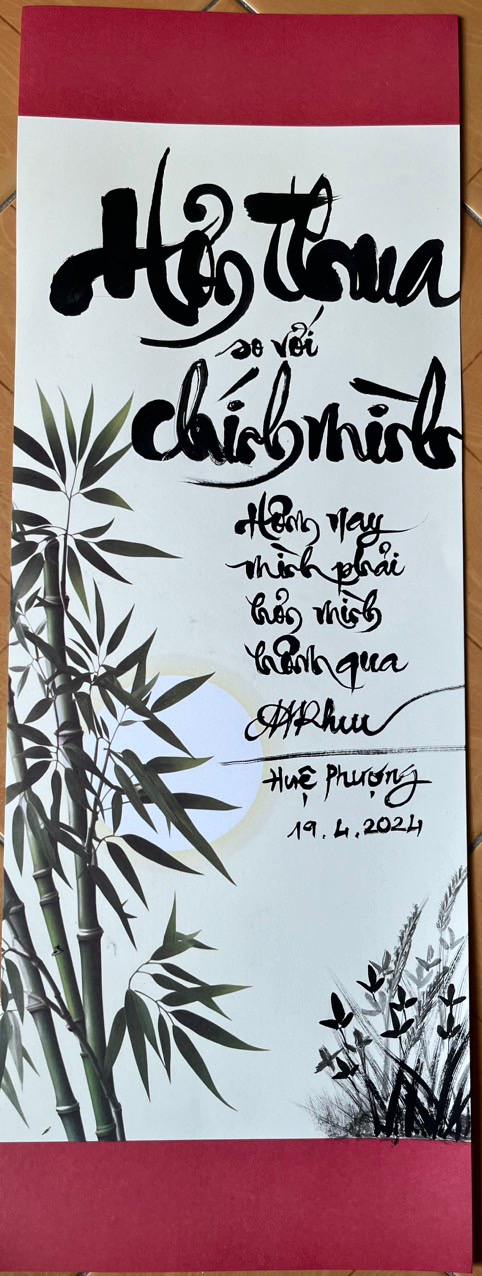 Hơn Thua
so với
chính mình
Hôm nay
mình phải
hơn mình
hôm qua
Huệ Phượng
19.4.2024